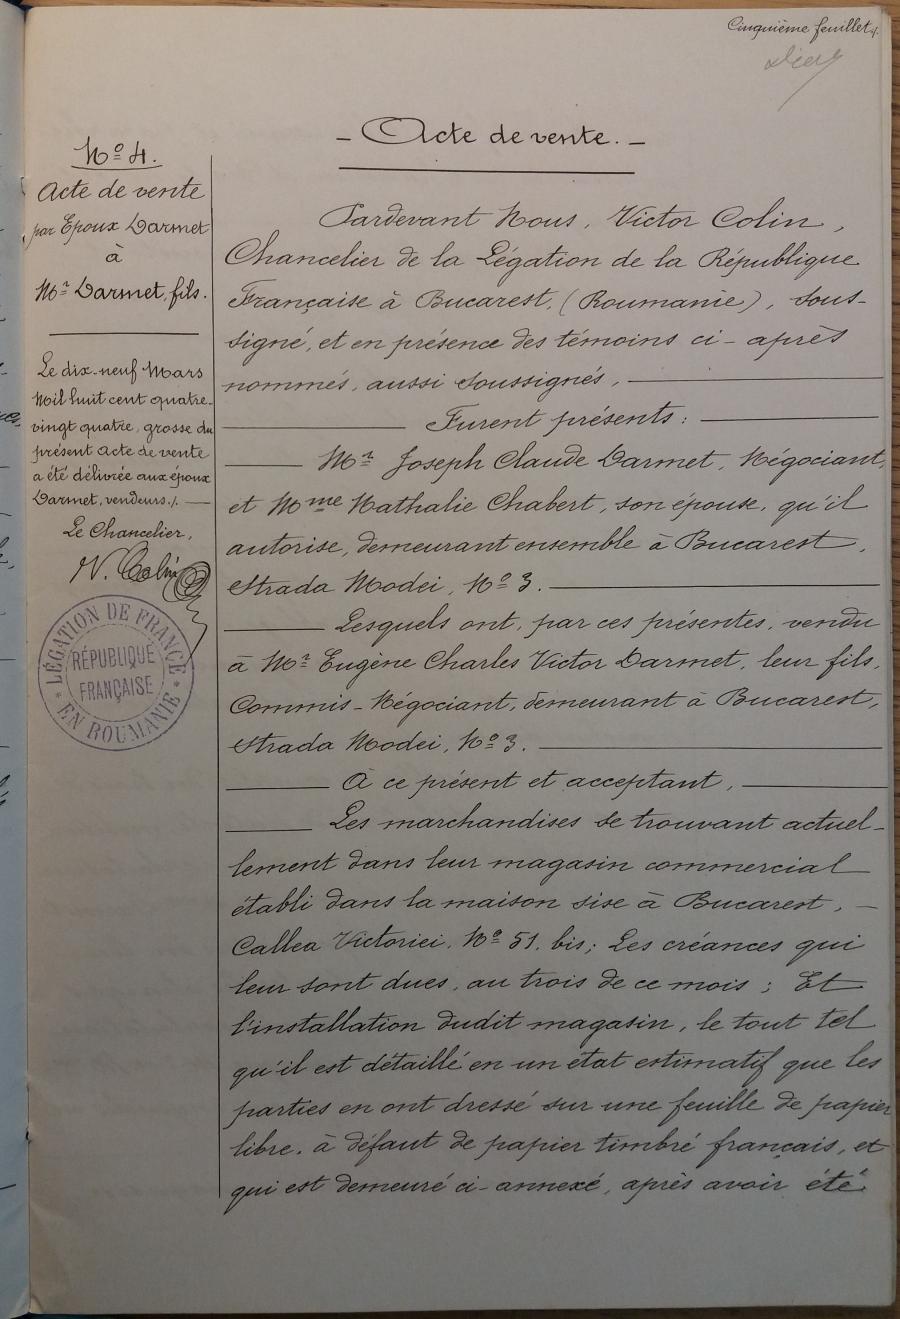 Cinquième feuillet.
- Acte de vente. -
Nº 4.
Acte de vente
par Epoux Darmet
à
Mr Darmet, fils.
Le dix-neuf Mars
Mil huit cent quatre-
vingt quatre, grosse du
présent acte de vente
a été délivrée aux époux
Darmet, vendeurs./. —
Le Chancelier,
V. Colin
LÉGATION DE FRANCE
* EN ROUMANIE *
RÉPUBLIQUE
FRANÇAISE
Pardevant Nous, Victor Colin,
Chancelier de la Légation de la République
Française à Bucarest, (Roumanie), sous-
signé, et en présence des témoins ci-après
nommés, aussi soussignés, —
— Furent présents: —
— Mr Joseph Claude Darmet, Négociant,
et Mme Nathalie Chabert, son épouse, qu'il
autorise, demeurant ensemble à Bucarest,
Strada Modei, Nº 3. —
— Lesquels ont, par ces présentes, vendu
à Mr Eugène Charles Victor Darmet, leur fils,
Commis-Négociant, demeurant à Bucarest,
Strada Modei, Nº 3. —
— À ce présent et acceptant, —
— Les marchandises se trouvant actuel-
lement dans leur magasin commercial
établi dans la maison sise à Bucarest, —
Callea Victoriei, Nº 51. bis; Les créances qui
leur sont dues, au trois de ce mois; Et
l'installation dudit magasin, le tout tel
qu'il est détaillé en un état estimatif que les
parties en ont dressé sur une feuille de papier
libre, à défaut de papier timbré français, et
qui est demeuré ci-annexé, après avoir été